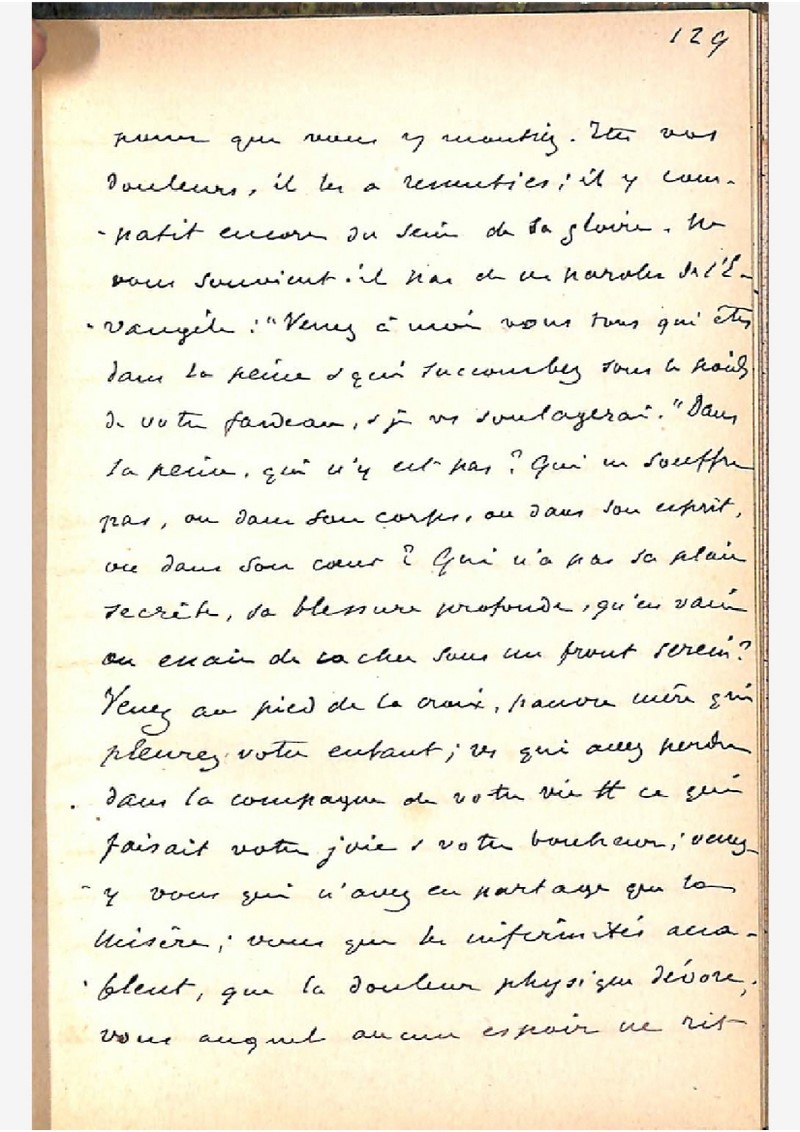 129
pour que vous y montiez. Ttes vos
douleurs, il les a ressenties; il y com-
-patit encore du sein de sa gloire. Ne
vous souvient-il pas de ces paroles de l'É-
-vangile: "Venez à moi vous tous qui êtes
dans la peine & qui succombez sous le poids
de votre fardeau, & je vs soulagerai." Dans
la peine, qui n'y est pas? Qui ne souffre
pas, ou dans son corps, ou dans son esprit,
ou dans son cœur? Qui n'a pas sa plaie
secrète, sa blessure profonde, qu'en vain
on essaie de cacher sous un front serein?
Venez au pied de la croix, pauvre mère qui
pleurez votre enfant; vs qui avez perdu
dans la compagne de votre vie tt ce qui
faisait votre joie & votre bonheur; venez-
-y vous qui n'avez en partage que la
misère; vous que les infirmités acca-
-blent, que la douleur physique dévore;
vous auquel aucun espoir ne rit